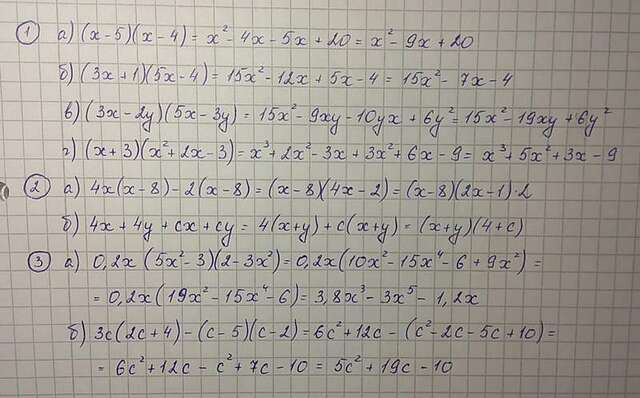 ① а) (x-5)(x-4) = x² - 4x - 5x + 20 = x² - 9x + 20
б) (3x+1)(5x-4) = 15x² - 12x + 5x - 4 = 15x² - 7x - 4
в) (3x-2y)(5x-3y) = 15x² - 9xy - 10yx + 6y² = 15x² - 19xy + 6y²
г) (x+3)(x²+2x-3) = x³ + 2x² - 3x + 3x² + 6x - 9 = x³ + 5x² + 3x - 9
② а) 4x(x-8) - 2(x-8) = (x-8)(4x-2) = (x-8)(2x-1)·2
б) 4x + 4y + cx + cy = 4(x+y) + c(x+y) = (x+y)(4+c)
③ а) 0,2x(5x²-3)(2-3x²) = 0,2x(10x² - 15x⁴ - 6 + 9x²) =
= 0,2x(19x² - 15x⁴ - 6) = 3,8x³ - 3x⁵ - 1,2x
б) 3c(2c+4) - (c-5)(c-2) = 6c² + 12c - (c² - 2c - 5c + 10) =
= 6c² + 12c - c² + 7c - 10 = 5c² + 19c - 10